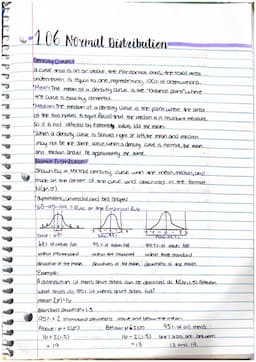 1.06 Normal Distribution
Density Curves
a curve that is on or above the horizontal axis, the total area
underneath is equal to one, representing 100% of observations.
Mean: The mean of a density curve is the "balance point" where
the curve is exactly centered.
Median: The median of a density curve is the point where the area
of the two halves is equal. Recall that the median is a resistant measure,
so it is not affected by extreme values, like the mean.
When a density curve is skewed right or left the mean and median
may not be the same value. When a density curve is normal, the mean
and median should be approximately the same.
Normal Distribution:
Shown by a normal density curve with the mean, median, and
mode at the center of the curve and described in the format
N(μ, σ)
Symmetric, unimodal, and bell shaped
68-95-99.7 Rule or the Empirical Rule
68% of values fall 95% of values fall 99.7% of values fall
within 1 standard within two standard within three standard
deviation of the mean deviations of the mean deviations of the mean
Example:
A distribution of men's shirt sizes can be described as N(16, 1.5). Between
what sizes do 95% of men's shirt sizes fall?
mean (μ) = 16
standard deviation = 1.5
95% = 2 standard deviations above and below the mean
Above: μ + 2(σ) Below: μ - 2(σ) 95% of all men's
16 + 2(1.5) 16 - 2(1.5) shirt sizes are between
= 19 = 13 13 and 19.